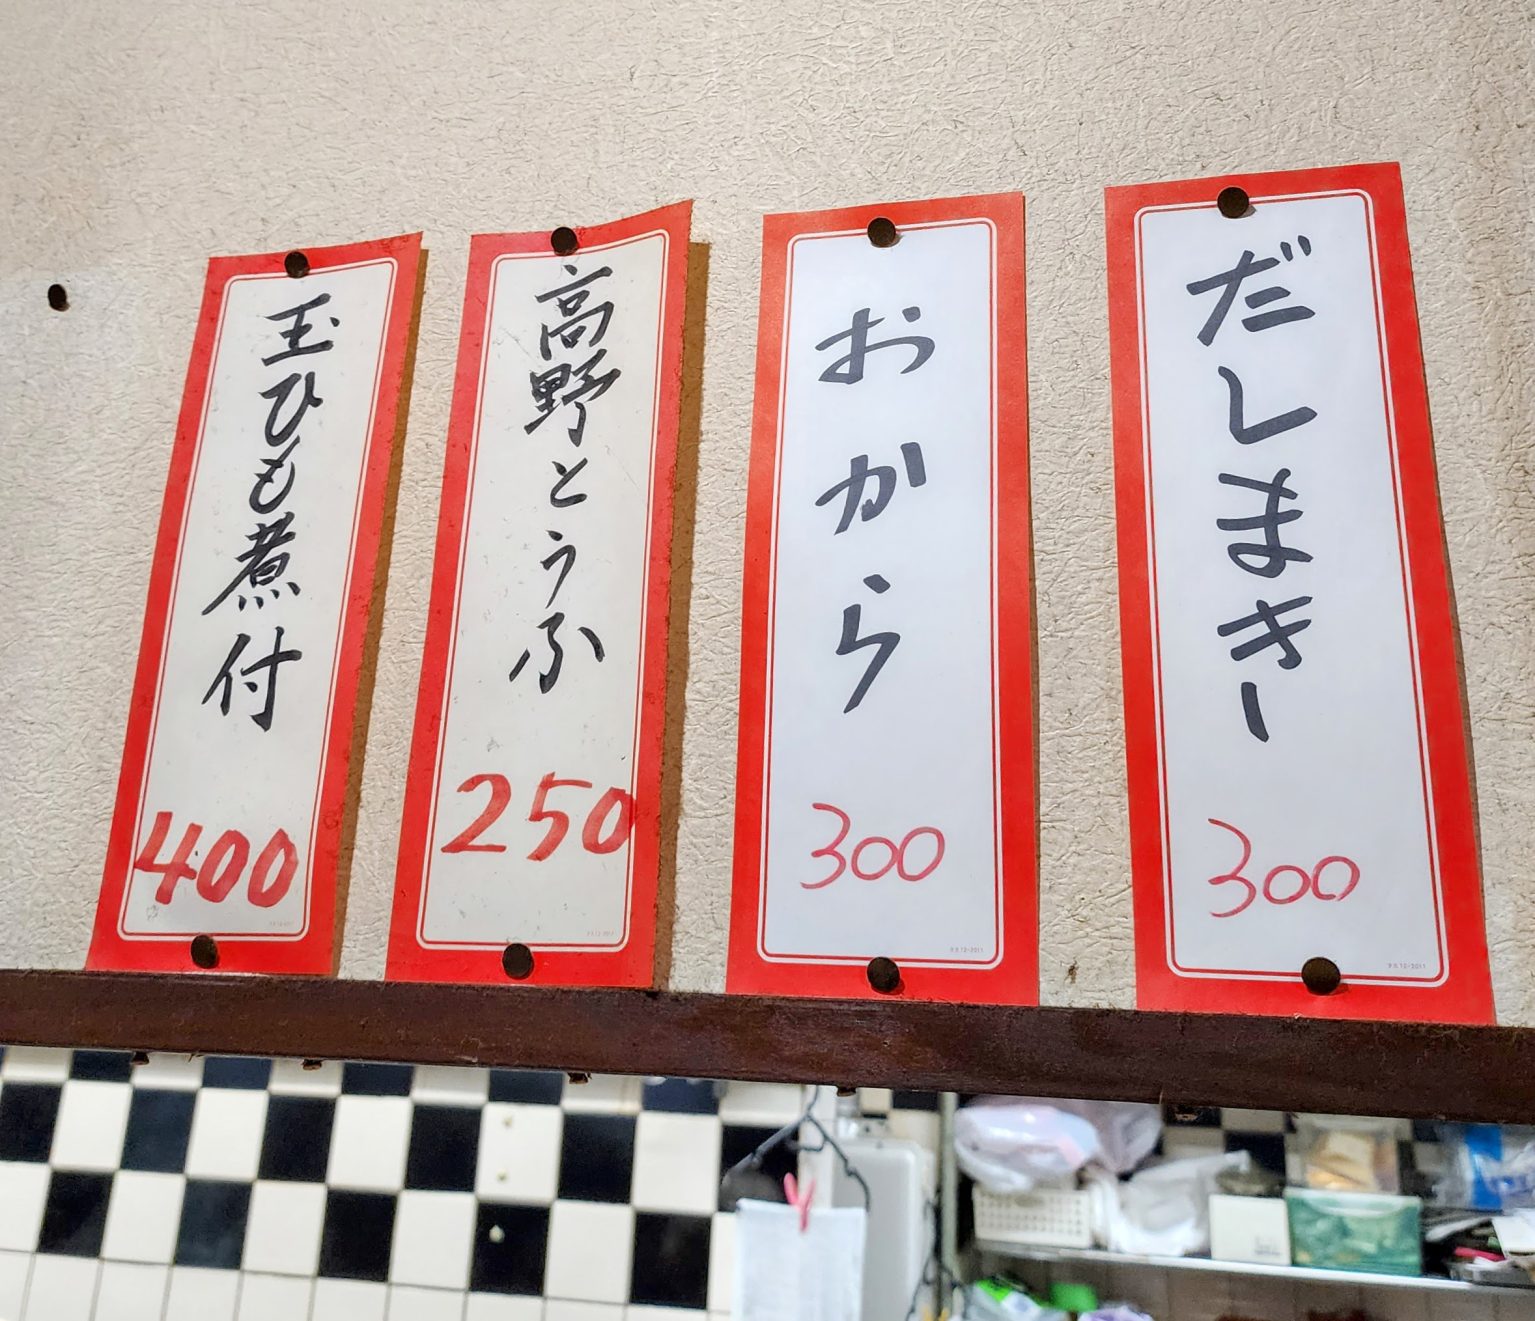 だしまきー
300
おから
300
高野とうふ
250
玉ひも煮付
400